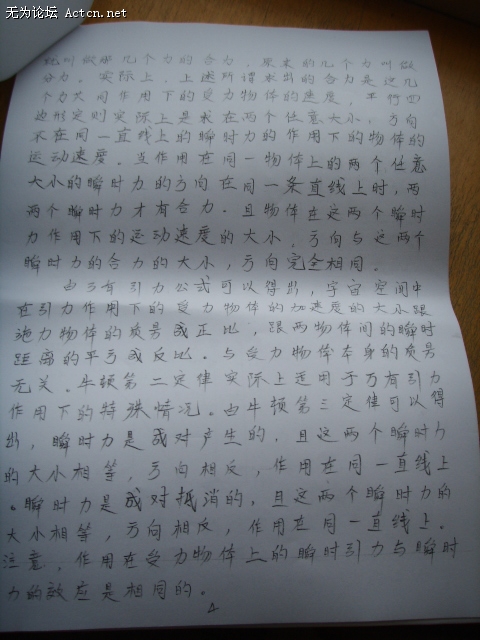 无为论坛 Actcn.net
就叫做那几个力的合力，原来的几个力叫做
分力。实际上，上述所谓求出的合力是这几
个力共同作用下的受力物体的速度，平行四
边形定则实际上是求在两个任意大小，方向
不在同一直线上的瞬时力的作用下的物体的
运动速度。当作用在同一物体上的两个任意
大小的瞬时力的方向在同一条直线上时，两
两个瞬时力才有合力．且物体在这两个瞬时
力作用下的运动速度的大小，方向与这两个
瞬时力的合力的大小，方向完全相同．
由万有引力公式可以得出，宇宙空间中
在引力作用下的受力物体的加速度的大小跟
施力物体的质量成正比，跟两物体间的瞬时
距离的平方成反比．与受力物体本身的质量
无关．牛顿第二定律实际上适用于万有引力
作用下的特殊情况。由牛顿第三定律可以得
出，瞬时力是成对产生的，且这两个瞬时力
的大小相等，方向相反，作用在同一直线上
。瞬时力是成对抵消的，且这两个瞬时力的
大小相等，方向相反，作用在同一直线上．
注意，作用在受力物体上的瞬时引力与瞬时
力的效应是相同的。
4